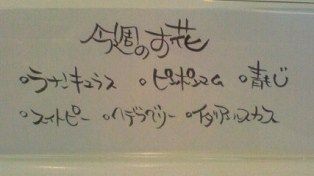 今週のお花
○ラナンキュラス ○ピンポンマム ○青もじ
○スイトピー ○ハデラベリー ○イタリアンルスカス